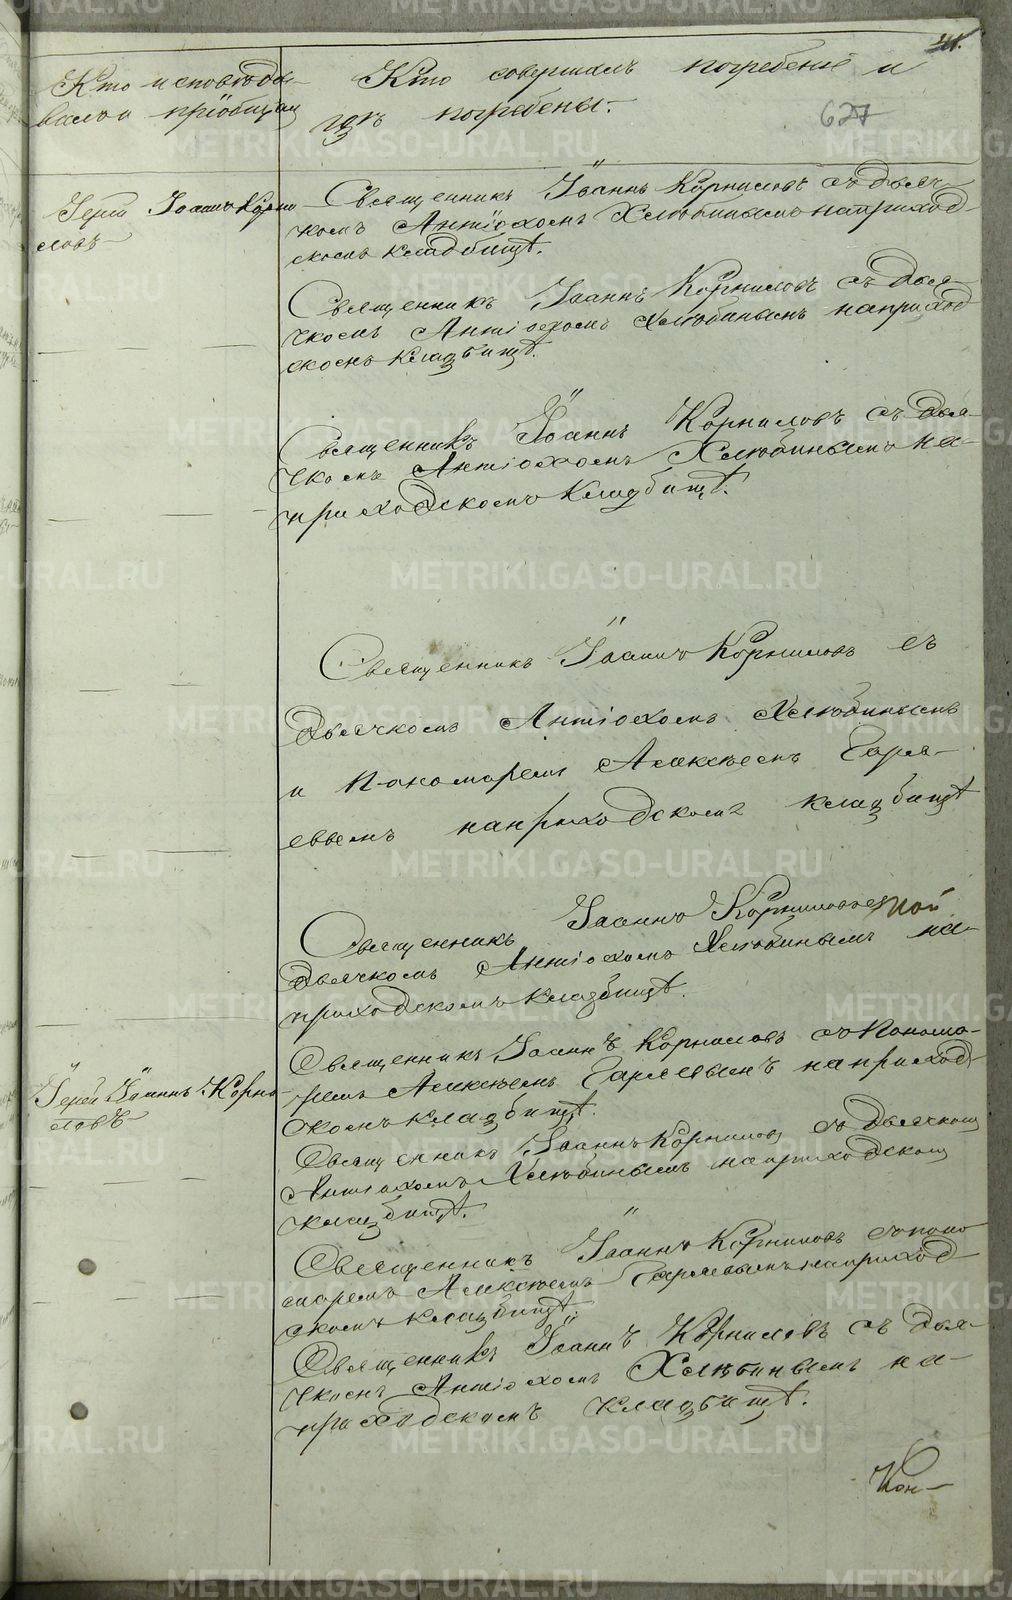 41.
627
Кто исповѣды-
валъ и пріобщал
Кто совершалъ погребеніе и
гдѣ погребены.
Іерей Іоаннъ Корни-
ловъ
Священникъ Іоаннъ Корниловъ съ дьяч-
комъ Антіохомъ Хлюбинымъ на приход-
скомъ кладбищѣ.
Священникъ Іоаннъ Корниловъ съ дья-
чкомъ Антіохомъ Хлюбинымъ на приход
скомъ кладбищѣ.
Священникъ Іоаннъ Корниловъ съ дья-
чкомъ Антіохомъ Хлюбинымъ на-
приходскомъ кладбищѣ.
Священникъ Іоаннъ Корниловъ съ
дьячкомъ Антіохомъ Хлюбинымъ
и Пономаремъ Алексѣемъ
на приходскомъ кладбищѣ
Священникъ Іоаннъ Корниловъ
дьячкомъ Антіохомъ Хлюбинымъ на-
приходскомъ кладбищѣ.
Іерей Іоаннъ Корни-
ловъ
Священникъ Іоаннъ Корниловъ съ Понома-
ремъ Алексѣемъ на приход
скомъ кладбищѣ.
Священникъ Іоаннъ Корнилов съ дьячкомъ
Антіохомъ Хлюбинымъ на приходском
кладбищѣ.
Священникъ Іоаннъ Корниловъ съ поно
маремъ Алексѣемъ на приход
скомъ кладбищѣ.
Священникъ Іоаннъ Корниловъ съ дья-
чкомъ Антіохомъ Хлюбинымъ на-
приходскомъ кладбищѣ.
Кон-
METRIKI.GASO-URAL.RU